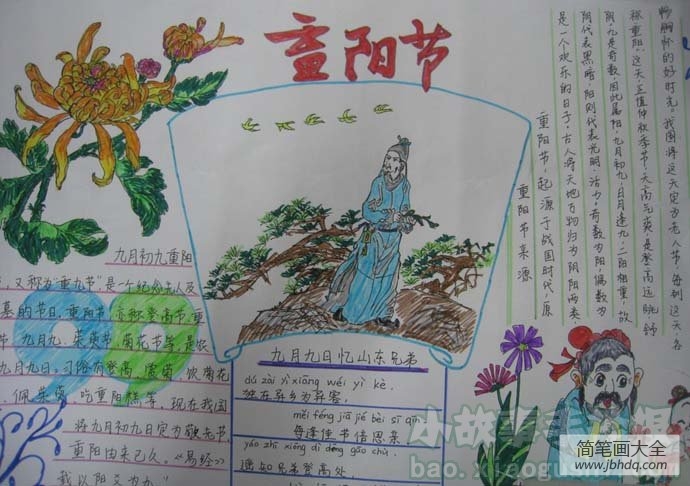 重阳节
九月初九重阳
,又称为"重九节"是一个纪念
的节日.重阳节,亦称登高节.重
节、九月九、茱萸节、菊花节等,是农
九月九日。习俗有登高、赏菊、饮菊花
、佩茱萸、吃重阳糕等。现在我国
将九月初九日定为敬老节。
重阳由来已久。《易经》
我以阳爻为九
九月九日忆山东兄弟
dú zài yì xiāng wéi yì kè,
独在异乡为异客,
měi féng jiā jié bèi sī qīn
每逢佳节倍思亲
yáo zhī xiōng dì dēng gāo chù,
遥知兄弟登高处,
重阳节来源
重阳节,起源于战国时代,原
是一个欢乐的日子。古人将天地万物归为阴阳两类
阴代表黑暗,阳则代表光明、活力。奇数为阳,偶数为
阴。九是奇数,因此属阳,九月初九,日月逢九,二阳相重,故
称重阳。这天,正值仲秋季节,天高气爽,是登高远眺舒
畅胸怀的好时光。我国将这天定为老人节,每到这天各
小故事手抄报
bao.xiaogushi
简笔画大全
www.jbhdq.com